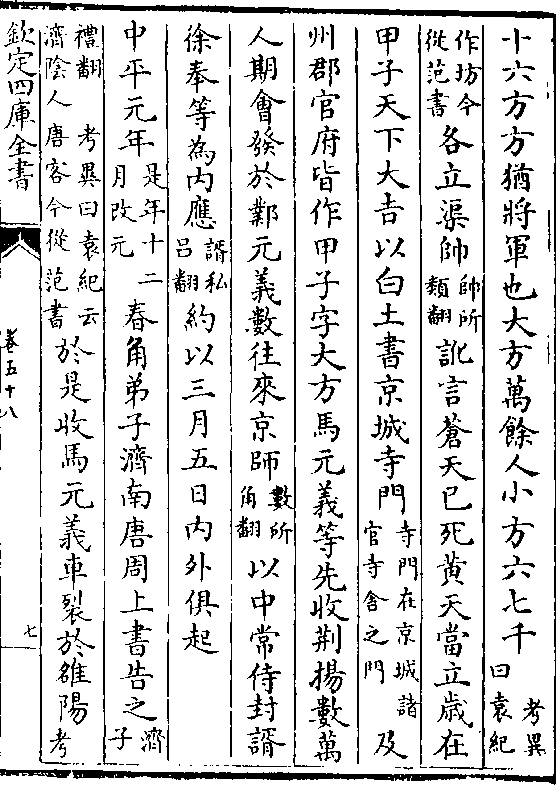 十六方方猶將軍也大方萬餘人小方六七千考異曰袁紀
作坊今從范書各立渠帥帥所類翻訛言蒼天已死黄天當立歲在
甲子天下大吉以白土書京城寺門寺門在京城諸官寺舍之門及
州郡官府皆作甲子字大方馬元義等先收荆揚數萬
人期會發於鄴元義數往來京師數所角翻以中常侍封諝
徐奉等為内應諝私吕翻約以三月五日内外俱起
中平元年是年十二月改元春角弟子濟南唐周上書告之濟子
禮翻考異曰袁紀云濟陰人唐客今從范書於是收馬元義車裂於雒陽考
欽定四庫全書
卷五十八
七